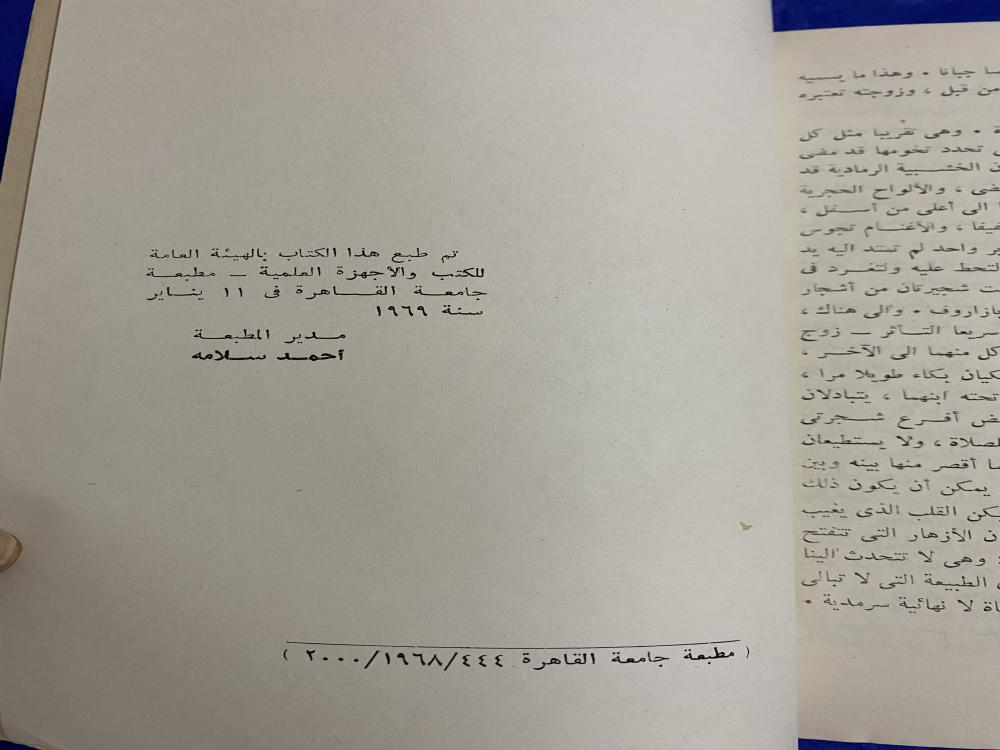 تم طبع هذا الكتاب بالهيئة العامة
للكتب والأجهزة العلمية – مطبعة
جامعة القاهرة فى ١١ يناير
سنة ١٩٦٩
مدير المطبعة
أحمد سلامه
( مطبعة جامعة القاهرة ٤٤٤/١٩٦٨/٢٠٠٠ )
جبانا . وهذا ما يسميه
من قبل ، وزوجته تعتبره
. وهى تقريبا مثل كل
تحدد تخومها قد مضى
الخشبية الرمادية قد
، والألواح الحجرية
الى أعلى من أسفل ،
، والأغنام تجوس
واحد لم تمتد اليه يد
لتحط عليه ولتغرد فى
شجيرتان من أشجار
بازاروف . والى هناك ،
سريعا التأثر – زوج
كل منهما الى الآخر ،
بكاء طويلا مرا ،
تحته ابنهما ، يتبادلان
أفرع شجرتى
الصلاة ، ولا يستطيعان
أقصر منها بينه وبين
يمكن أن يكون ذلك
يكن القلب الذى يغيب
الأزهار التى تتفتح
وهى لا تتحدث الينا
، الطبيعة التى لا تبالى
لا نهائية سرمدية .